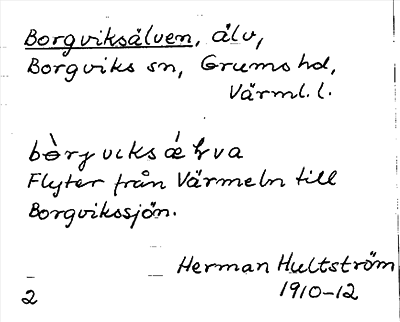 Borgviksälven, älv,
Borgviks sn, Grums hd,
Värml. l.
bòrj vıks ǽ ɫva
Flyter från Värmeln till
Borgvikssjön.
Herman Hultström
1910-12
2